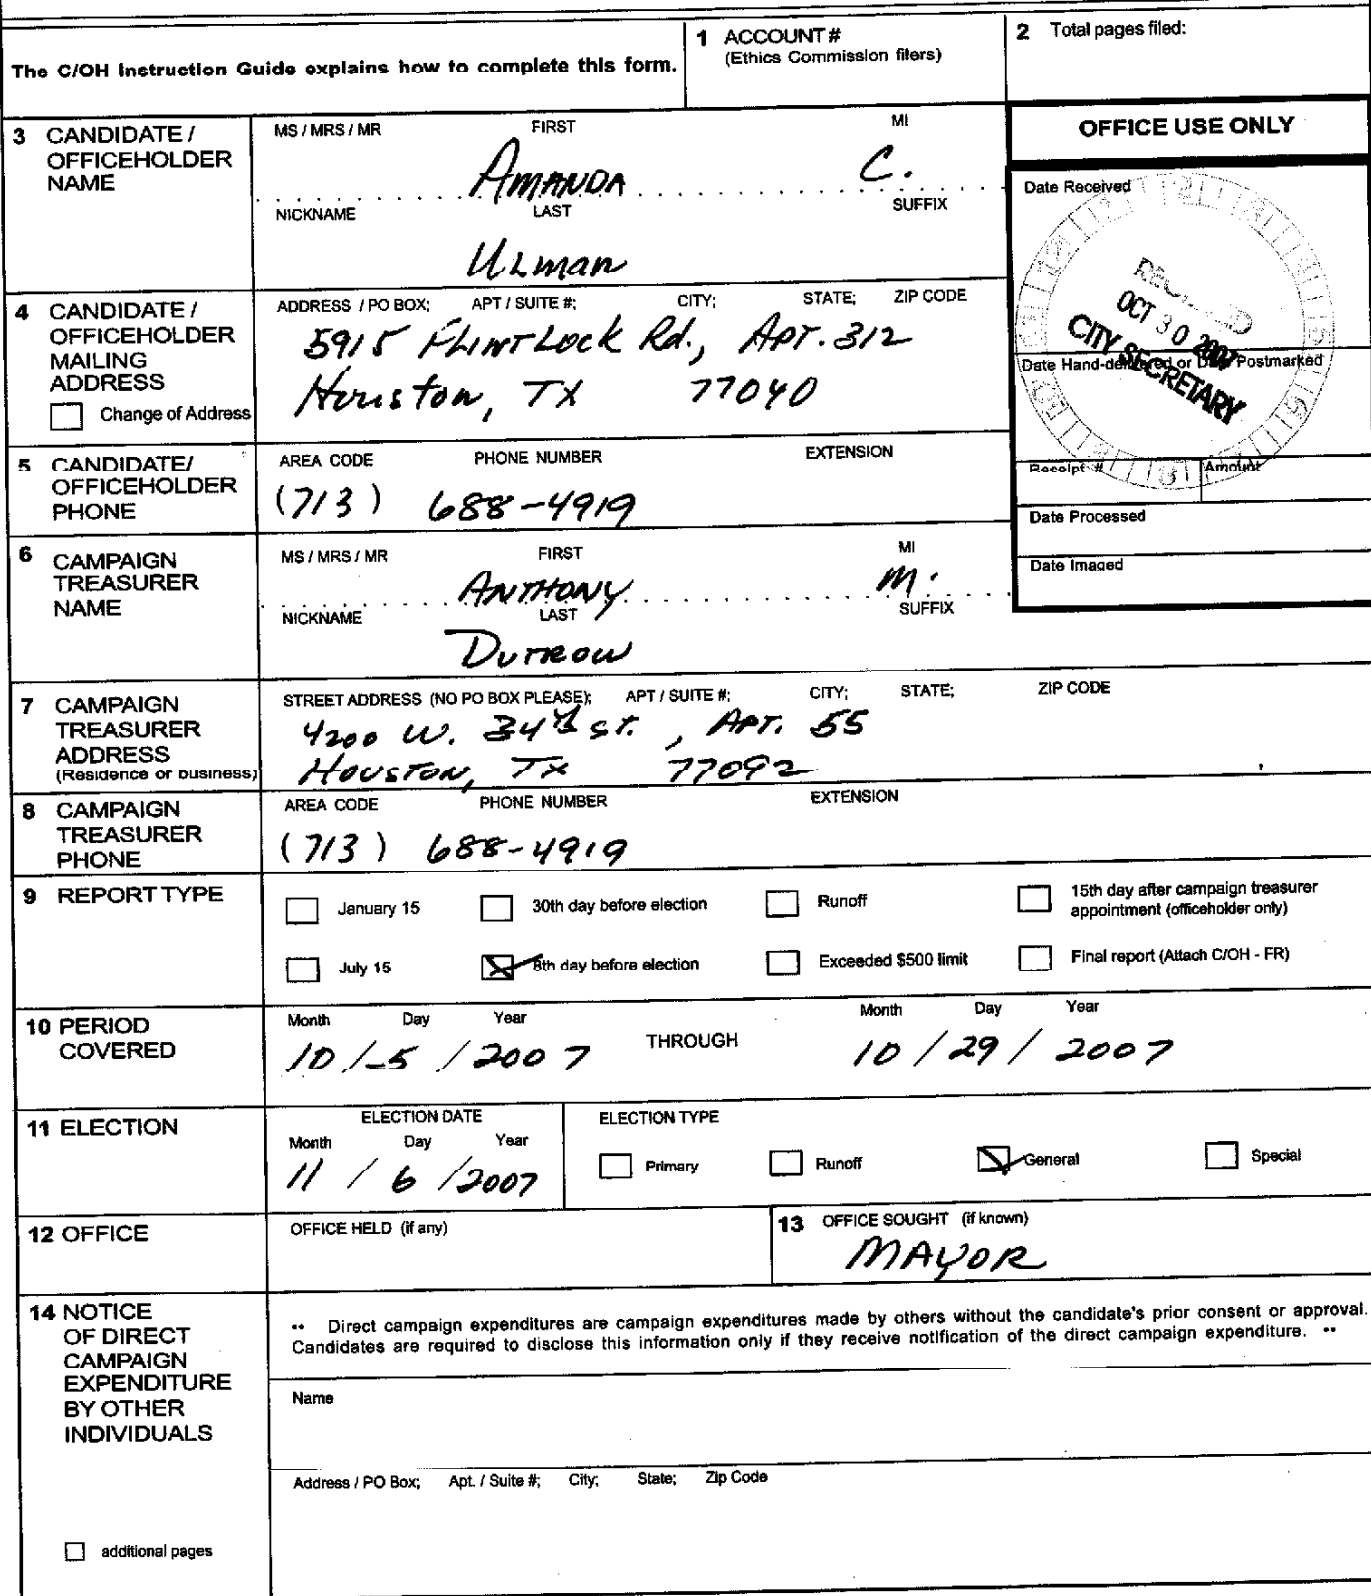 The C/OH Instruction Guide explains how to complete this form.
1 ACCOUNT #
(Ethics Commission filers)
2 Total pages filed:
3 CANDIDATE /
OFFICEHOLDER
NAME
MS / MRS / MR FIRST MI
AMANDA C.
NICKNAME LAST SUFFIX
ULman
OFFICE USE ONLY
Date Received
RECEIVED
OCT 30 2007
CITY SECRETARY
Date Hand-delivered or Date Postmarked
Receipt # Amount
Date Processed
Date Imaged
4 CANDIDATE /
OFFICEHOLDER
MAILING
ADDRESS
Change of Address
ADDRESS / PO BOX; APT / SUITE #; CITY; STATE; ZIP CODE
5915 FLINTLOCK Rd., APT. 312
Houston, TX 77040
5 CANDIDATE/
OFFICEHOLDER
PHONE
AREA CODE PHONE NUMBER EXTENSION
(713) 688-4919
6 CAMPAIGN
TREASURER
NAME
MS / MRS / MR FIRST MI
ANTHONY M.
NICKNAME LAST SUFFIX
DUTROW
7 CAMPAIGN
TREASURER
ADDRESS
(Residence or business)
STREET ADDRESS (NO PO BOX PLEASE); APT / SUITE #; CITY; STATE; ZIP CODE
4200 W. 34th ST., APT. 55
HOUSTON, TX 77092
8 CAMPAIGN
TREASURER
PHONE
AREA CODE PHONE NUMBER EXTENSION
(713) 688-4919
9 REPORT TYPE
January 15 30th day before election Runoff 15th day after campaign treasurer
appointment (officeholder only)
July 15 8th day before election Exceeded $500 limit Final report (Attach C/OH - FR)
10 PERIOD
COVERED
Month Day Year THROUGH Month Day Year
10 / 5 / 2007 10 / 29 / 2007
11 ELECTION
ELECTION DATE
Month Day Year
11 / 6 / 2007
ELECTION TYPE
Primary Runoff General Special
12 OFFICE
OFFICE HELD (if any)
13 OFFICE SOUGHT (if known)
MAYOR
14 NOTICE
OF DIRECT
CAMPAIGN
EXPENDITURE
BY OTHER
INDIVIDUALS
•• Direct campaign expenditures are campaign expenditures made by others without the candidate's prior consent or approval.
Candidates are required to disclose this information only if they receive notification of the direct campaign expenditure. ••
Name
Address / PO Box; Apt. / Suite #; City; State; Zip Code
additional pages